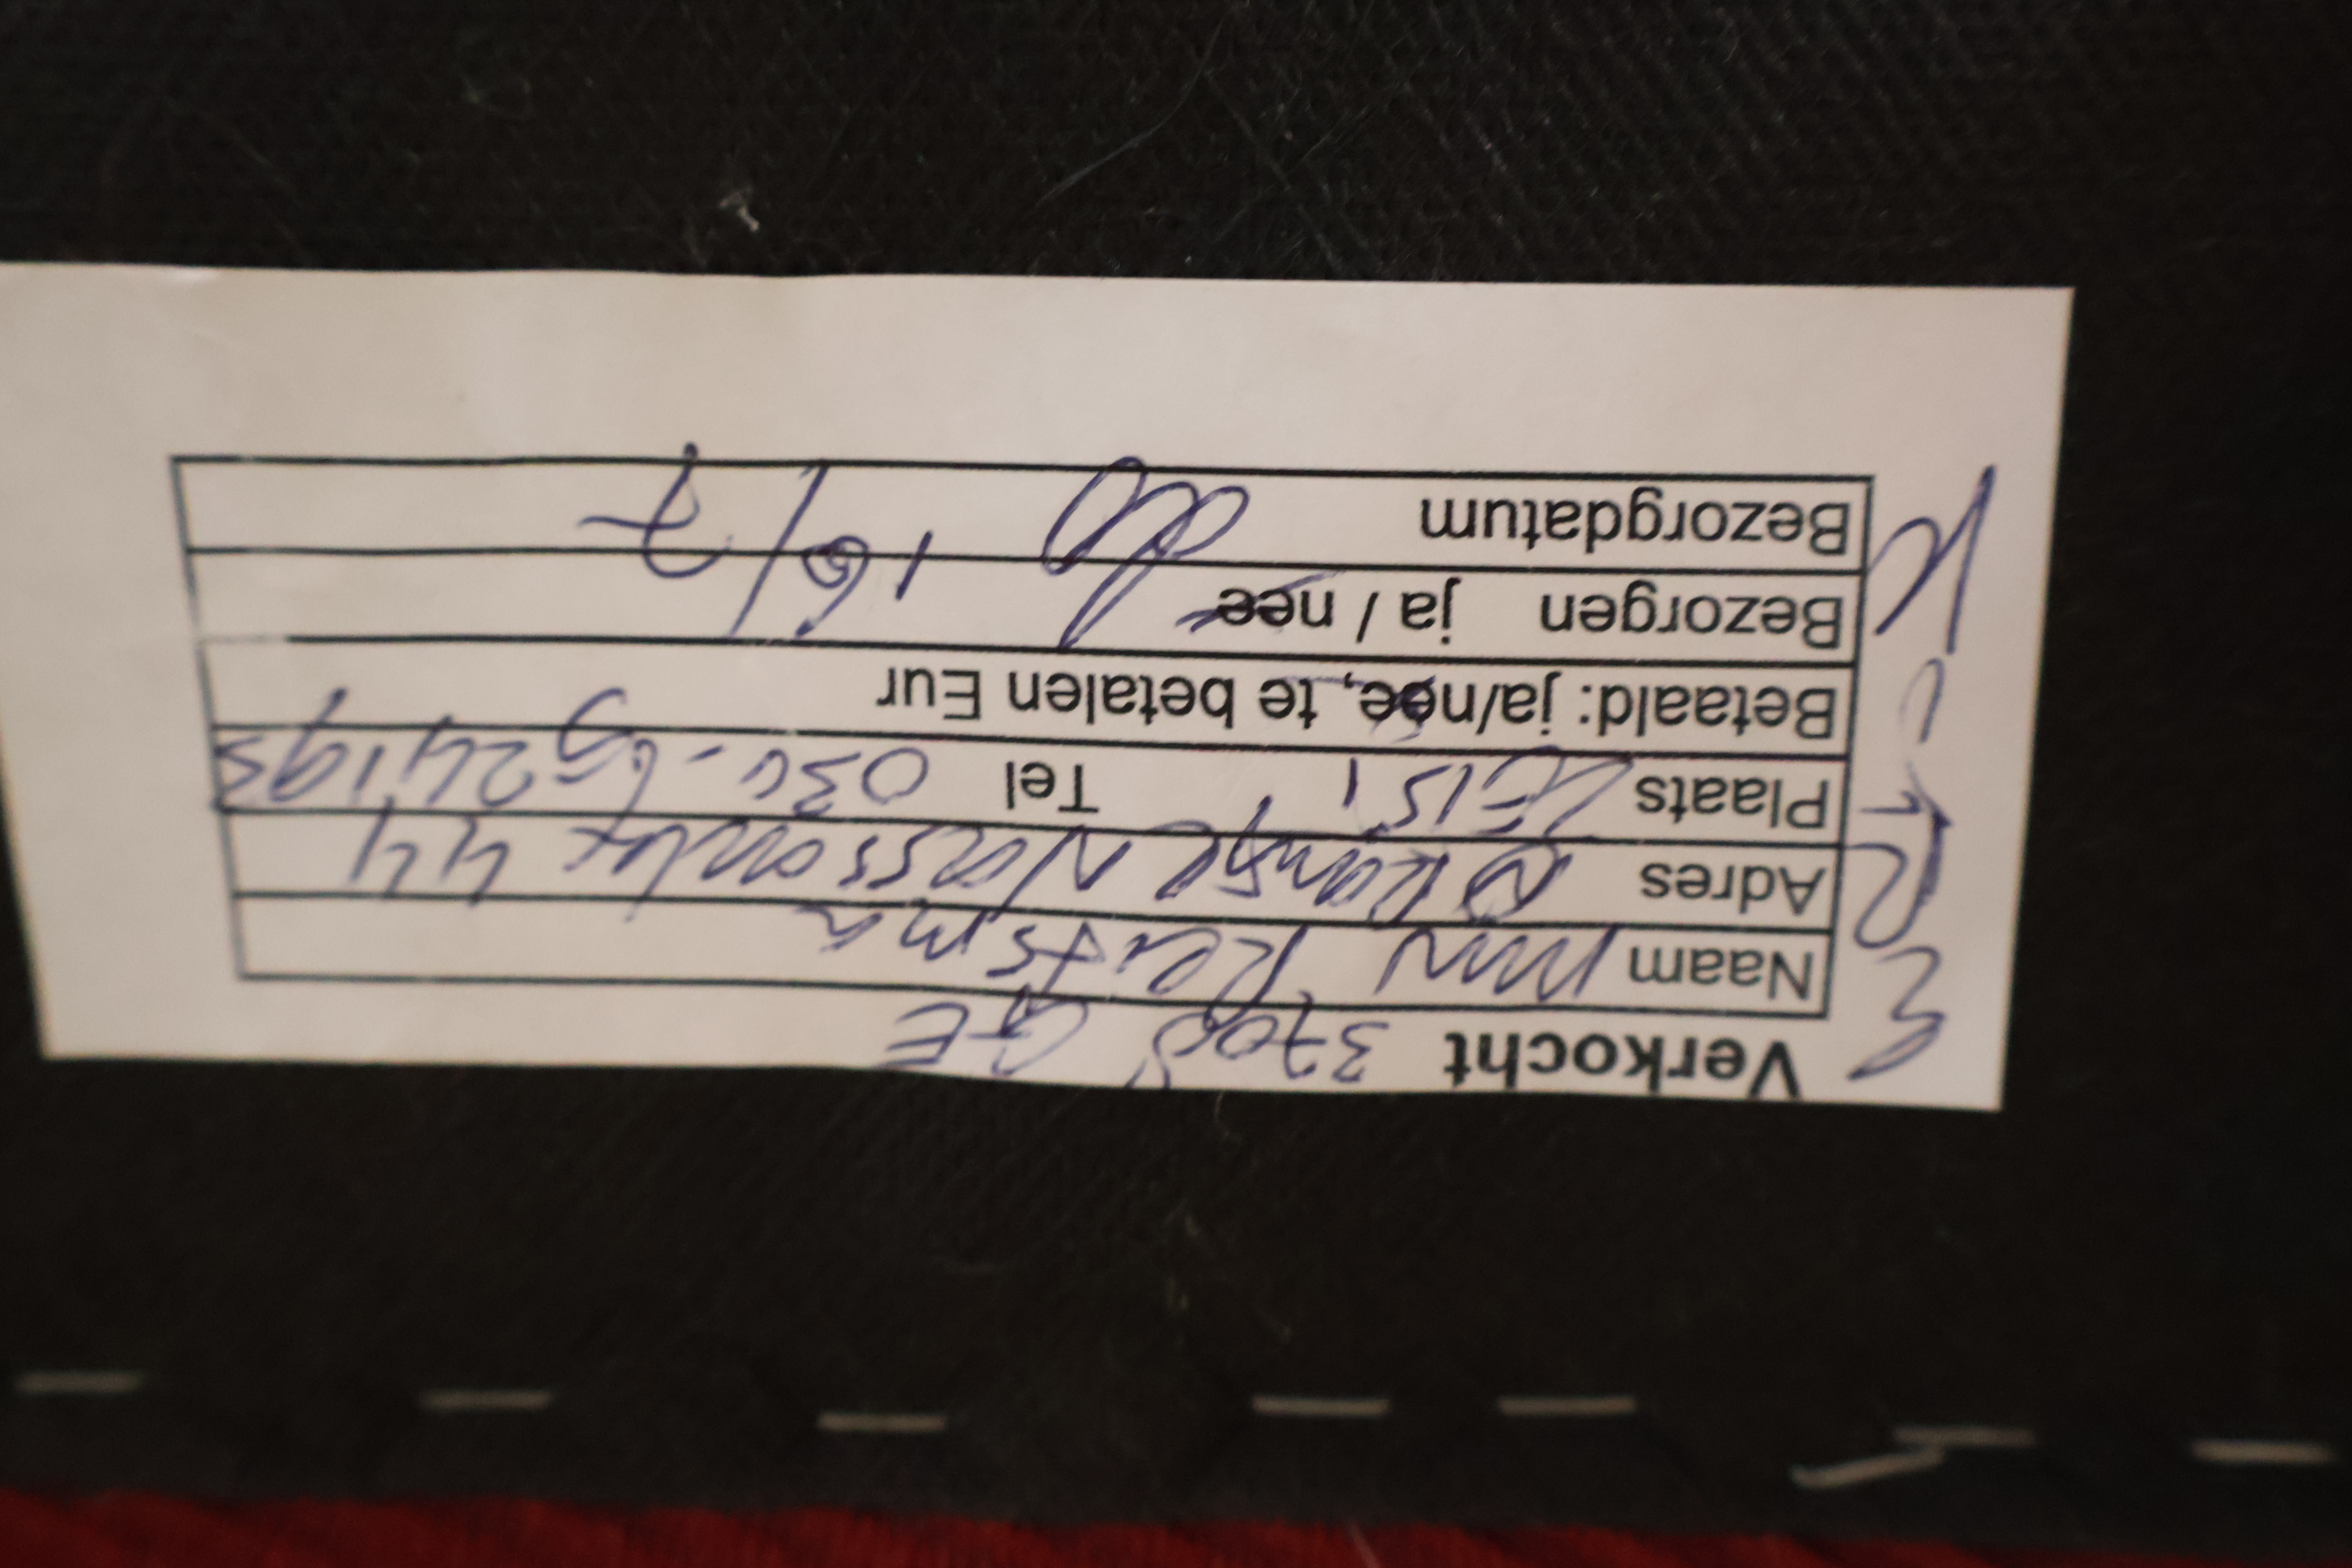 Verkocht 3708 GE
Naam mw Reitsma
Adres Oranje Nassaulx 44
Plaats ZEIST Tel 030-6924193
Betaald: ja/nee, te betalen Eur
Bezorgen ja / nee
Bezorgdatum do 16/7